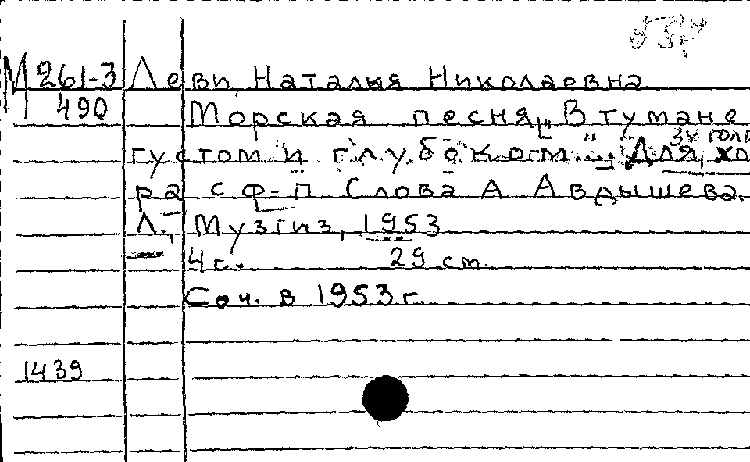 М 261-3 Леви, Наталья Николаевна
490 Морская песня „В тумане
3х голо
густом и глубоком..." Для хо
ра с ф-п. Слова А Авдышева.
Л., Музгиз, 1953
4 с. 29 см.
Соч. в 1953 г.
1439